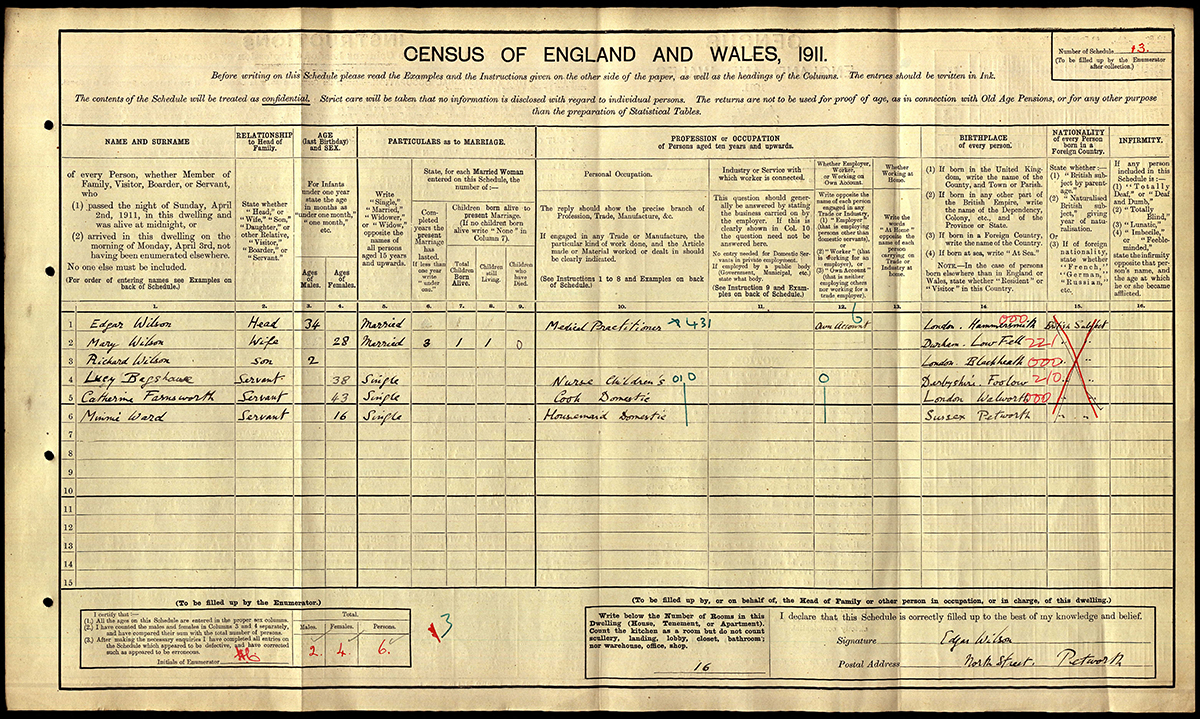 CENSUS OF ENGLAND AND WALES, 1911.
Number of Schedule 13.
(To be filled up by the Enumerator
after collection.)
Before writing on this Schedule please read the Examples and the Instructions given on the other side of the paper, as well as the headings of the Columns. The entries should be written in Ink.
The contents of the Schedule will be treated as confidential. Strict care will be taken that no information is disclosed with regard to individual persons. The returns are not to be used for proof of age, as in connection with Old Age Pensions, or for any other purpose
than the preparation of Statistical Tables.
NAME AND SURNAME
of every Person, whether Member of
Family, Visitor, Boarder, or Servant,
who
(1) passed the night of Sunday, April
2nd, 1911, in this dwelling and
was alive at midnight, or
(2) arrived in this dwelling on the
morning of Monday, April 3rd, not
having been enumerated elsewhere.
No one else must be included.
(For order of entering names see Examples on
back of Schedule.)
1.
RELATIONSHIP
to Head of
Family.
State whether
"Head," or
"Wife," "Son,"
"Daughter," or
other Relative,
"Visitor,"
"Boarder," or
"Servant."
2.
AGE
(last Birthday)
and SEX.
For Infants
under one year
state the age
in months as
"under one month,"
"one month,"
etc.
Ages
of
Males.
Ages
of
Females.
3.
4.
PARTICULARS as to MARRIAGE.
Write
"Single,"
"Married,"
"Widower,"
or "Widow,"
opposite the
names of
all persons
aged 15 years
and upwards.
5.
State, for each Married Woman
entered on this Schedule, the
number of:—
Completed
years the
present
Marriage
has
lasted.
If less than
one year
write
"under
one."
6.
Children born alive to
present Marriage.
(If no children born
alive write "None" in
Column 7).
Total
Children
Born
Alive.
7.
Children
still
Living.
8.
Children
who
have
Died.
9.
PROFESSION or OCCUPATION
of Persons aged ten years and upwards.
Personal Occupation.
The reply should show the precise branch of
Profession, Trade, Manufacture, &c.
If engaged in any Trade or Manufacture, the
particular kind of work done, and the Article
made or Material worked or dealt in should
be clearly indicated.
(See Instructions 1 to 8 and Examples on back
of Schedule.)
10.
Industry or Service with
which worker is connected.
This question should generally
be answered by stating
the business carried on by
the employer. If this is
clearly shown in Col. 10
the question need not be
answered here.
No entry needed for Domestic Servants
in private employment.
If employed by a public body
(Government, Municipal, etc.)
state what body.
(See Instruction 9 and Examples
on back of Schedule.)
11.
Whether Employer,
Worker,
or Working on
Own Account.
Write opposite the
name of each person
engaged in any
Trade or Industry,
(1) "Employer"
(that is employing
persons other than
domestic servants),
or
(2) "Worker" (that
is working for an
employer), or
(3) "Own Account"
(that is neither
employing others
nor working for a
trade employer).
12.
Whether
Working at
Home.
Write the
words
"At Home"
opposite the
name of each
person
carrying on
Trade or
Industry at
home.
13.
BIRTHPLACE
of every person.
(1) If born in the United Kingdom,
write the name of the
County, and Town or Parish.
(2) If born in any other part of
the British Empire, write
the name of the Dependency,
Colony, etc., and of the
Province or State.
(3) If born in a Foreign Country,
write the name of the Country.
(4) If born at sea, write "At Sea."
NOTE.—In the case of persons
born elsewhere than in England or
Wales, state whether "Resident" or
"Visitor" in this Country.
14.
NATIONALITY
of every Person
born in a
Foreign Country.
State whether:—
(1) "British subject
by parentage,"
(2) "Naturalised
British subject,"
giving
year of naturalisation.
Or
(3) If of foreign
nationality,
state whether
"French,"
"German,"
"Russian,"
etc.
15.
INFIRMITY.
If any person
included in this
Schedule is:—
(1) "Totally
Deaf," or "Deaf
and Dumb,"
(2) "Totally
Blind,"
(3) "Lunatic,"
(4) "Imbecile,"
or "Feeble-minded,"
state the infirmity
opposite that person's
name, and
the age at which
he or she became
afflicted.
16.
1 Edgar Wilson Head 34 Married Medical Practitioner 431 Own Account 6 London. Hammersmith 000 British Subject
2 Mary Wilson Wife 28 Married 3 1 1 0 Durham. Low Fell 221 " "
3 Richard Wilson Son 2 London. Blackheath 000 " "
4 Lucy Bagshawe Servant 38 Single Nurse Children's 010 0 Derbyshire. Foolow 210 " "
5 Catherine Farnsworth Servant 43 Single Cook Domestic London Walworth 000 " "
6 Minnie Ward Servant 16 Single Housemaid Domestic Sussex Petworth " "
7
8
9
10
11
12
13
14
15
(To be filled up by the Enumerator.)
I certify that:—
(1.) All the ages on this Schedule are entered in the proper sex columns.
(2.) I have counted the males and females in Columns 3 and 4 separately,
and have compared their sum with the total number of persons.
(3.) After making the necessary enquiries I have completed all entries on
the Schedule which appeared to be defective, and have corrected
such as appeared to be erroneous.
Initials of Enumerator
Total.
Males. Females. Persons.
2. 4. 6.
3
(To be filled up by, or on behalf of, the Head of Family or other person in occupation, or in charge, of this dwelling.)
Write below the Number of Rooms in this
Dwelling (House, Tenement, or Apartment).
Count the kitchen as a room but do not count
scullery, landing, lobby, closet, bathroom;
nor warehouse, office, shop.
16
I declare that this Schedule is correctly filled up to the best of my knowledge and belief.
Signature Edgar Wilson
Postal Address North Street. Petworth